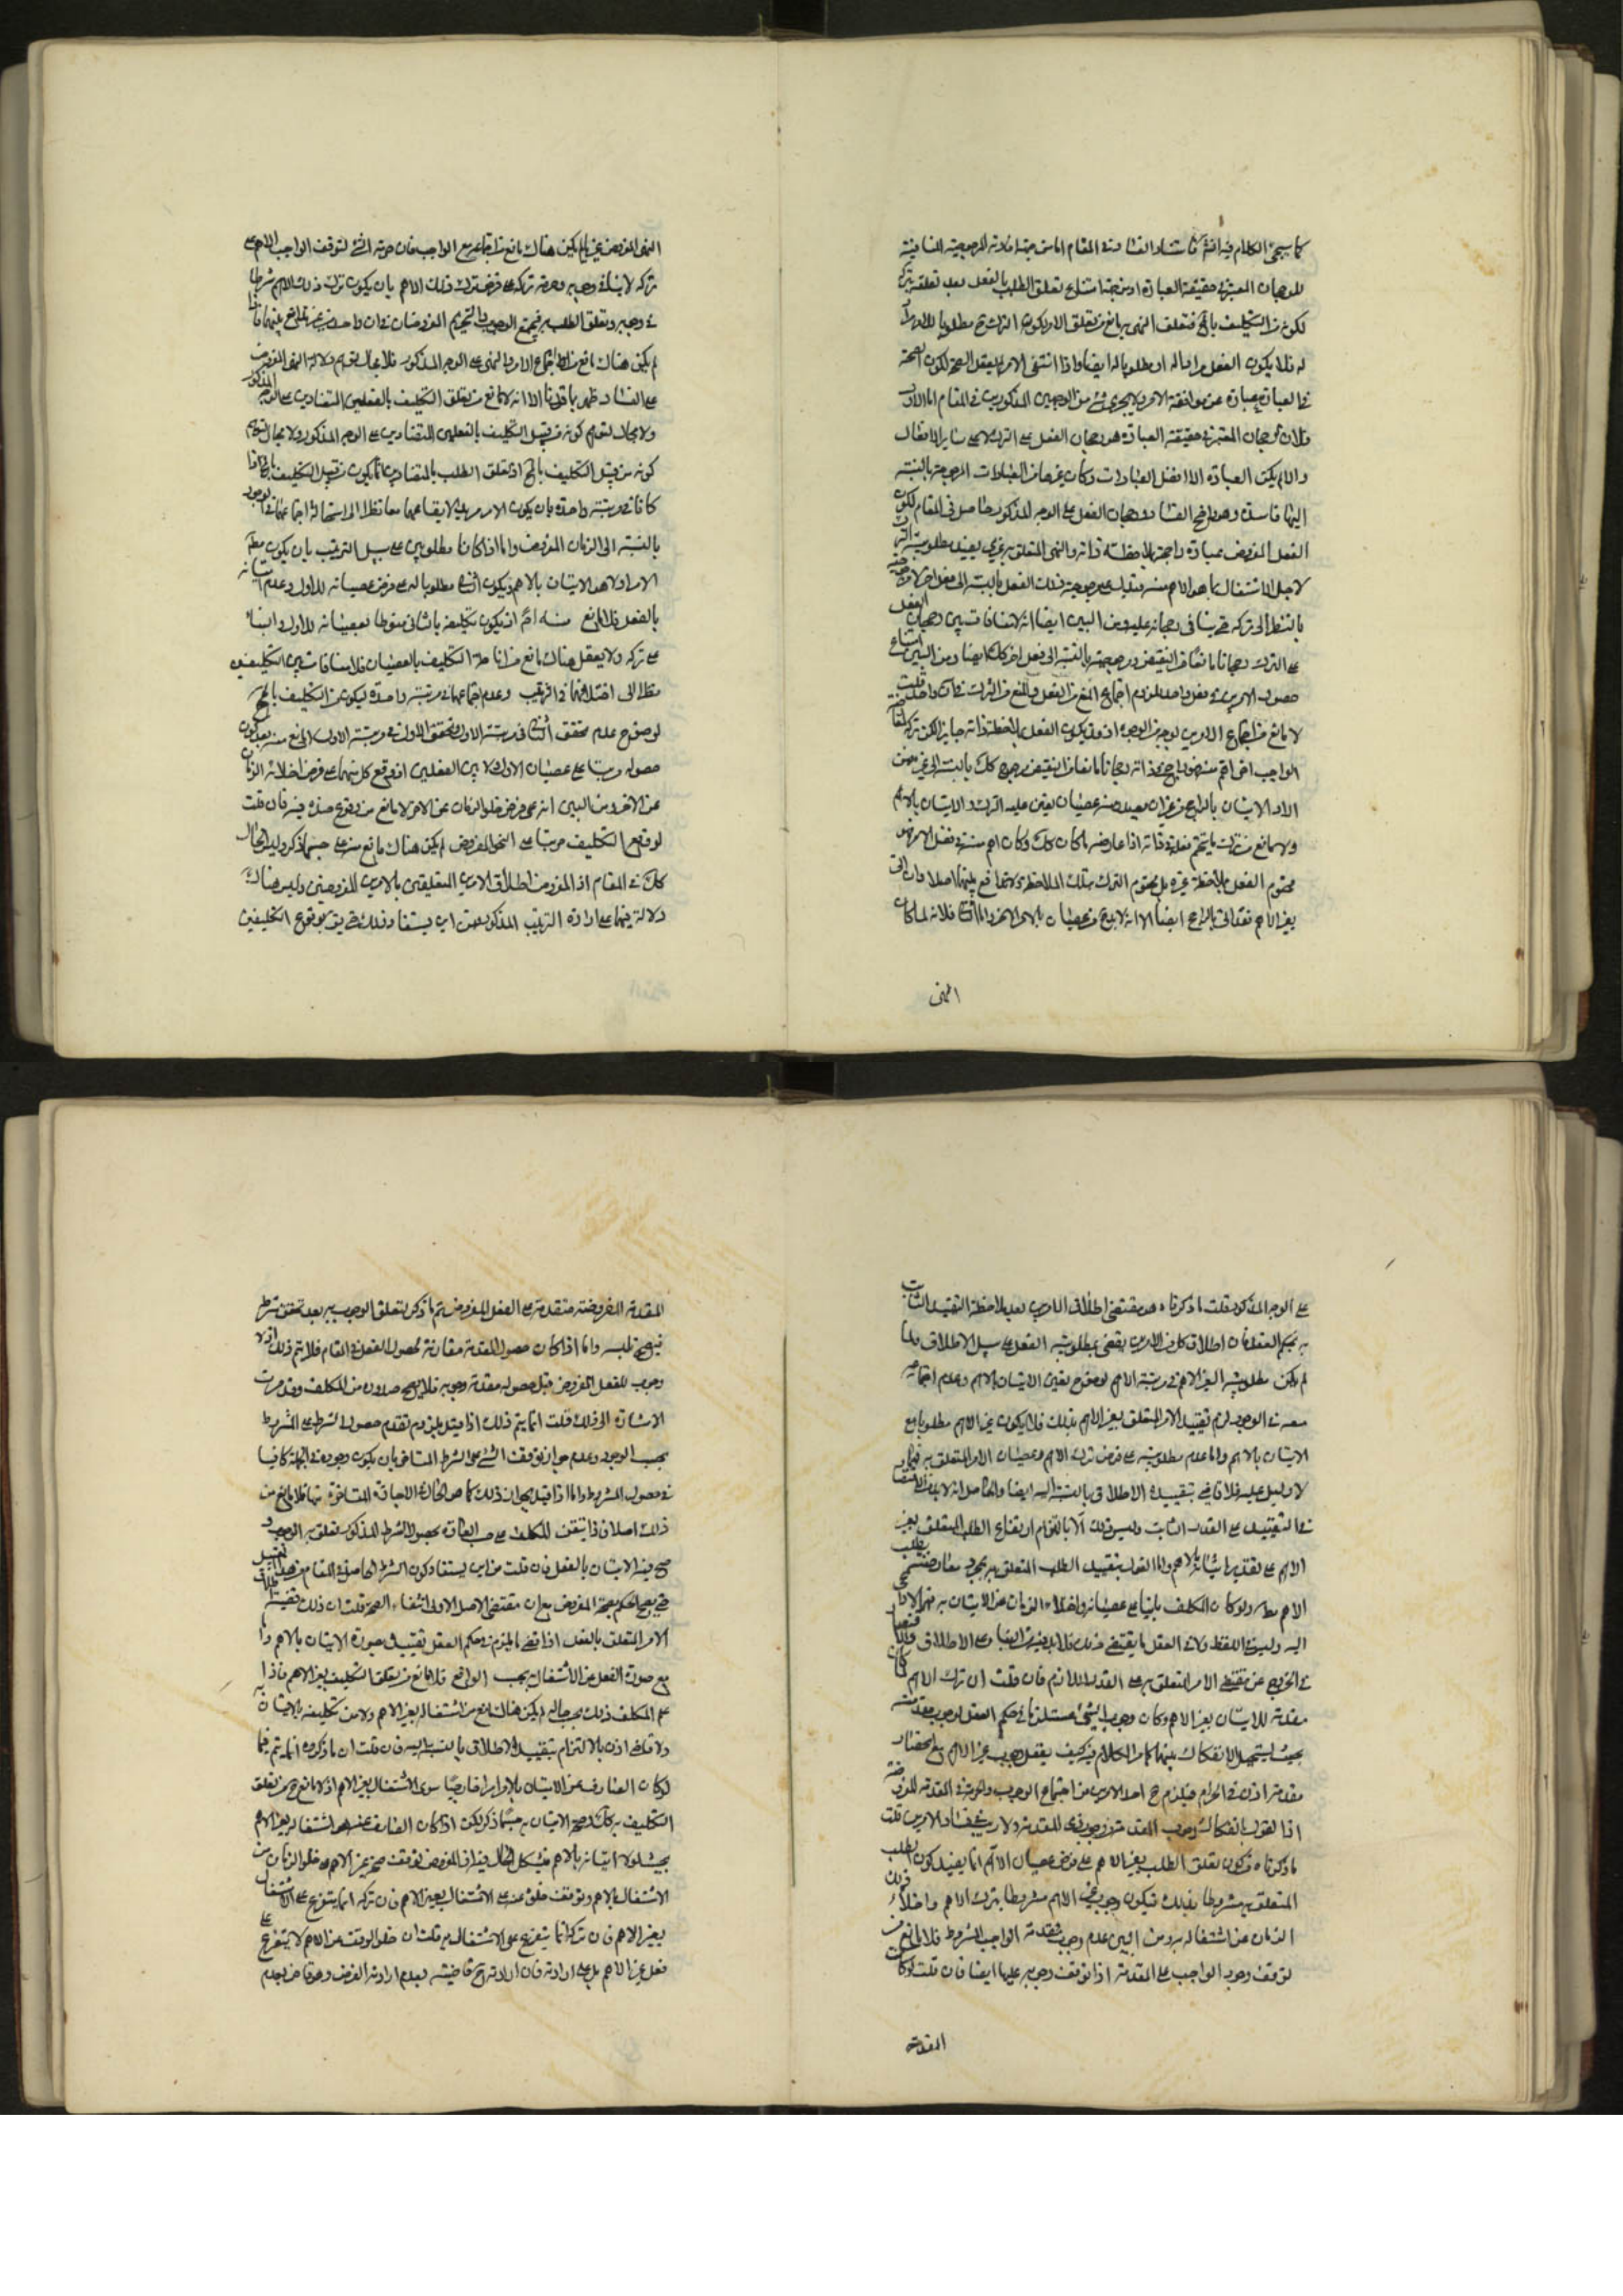 كما سيجئ الكلام فيه انش فاستناد الفساد في المقام اما من جهة افادته المرجوحية المنافية
للرجحان المعتبر في حقيقة العبادة او من جهة امتناع تعلق الطلب بالفعل بعد تعلقه بتركه
لكونه من التكليف بالمح فتعلق النهي به مانع من تعلق الامر لكون الترك ح مطلوبا للامر مرادا
له فلا يكون الفعل مرادا له او مطلوبا له ايضا واذا انتفى الامر لم يعقل الصحة لكون الصحة
في العبادة عبارة عن موافقة الامر ولا يجري شئ من الوجهين المذكورين في المقام اما الاول
فلان الرجحان المعتبر في حقيقة العبادة هو رجحان الفعل على الترك لا على سائر الافعال
والا لم يكن العبادة الا افضل العبادات وكان غيرها من العبادات المرجوحة بالنسبة
اليها فاسدة وهو واضح الفساد ورجحان الفعل على الوجه المذكور حاصل في المقام لكون
الفعل المفروض عبادة راجحة بملاحظة ذاته والنهي المتعلق به غيري يفيد مطلوبية الترك
لاجل الاشتغال بما هو الاهم منه
بالنظر الى تركه ح ينافي رجحانه عليه ومن البين ايضا انه لا منافاة بين رجحان الفعل
على الترك رجحانا مانعا من النقيض ومرجوحيته بالنسبة الى فعل اخر كك ايضا ومن البين امتناع
حصول الامرين في فعل واحد للزوم اجتماع المنع من الفعل والمنع من الترك في ان واحد قلت
لا مانع من اجتماع الامرين
الواجب اخر اهم منه
الاول الاتيان بالراجح
ولا مانع من ترك ما يتحتم فعله في ذاته اذا عارضه ما كان كك وكان اهم منه في نظر الامر فهو
محتوم الفعل بملاحظة غيره بل محتوم الترك بتلك الملاحظة ولا تدافع بينهما اصلا وان اتى
بغير الاهم فقد اتى بالراجح ايضا الا انه لا يخلو من عصيان بالامر الاخر واما الثاني فلانه لما كان
النهي
النهي المفروض غيريا لم يكن هناك مانع من اجتماعه مع الواجب فان حرمة الشئ لتوقف الواجب الاهم على
تركه لا ينافي وجوبه وحرمة تركه على فرض ترك ذلك الاهم بان يكون ترك ذلك الاهم شرطا
في وجوبه وتعلق الطلب به فيجتمع الوجوب والتحريم المفروضان في ان واحد من غير تمانع بينهما فاذا
لم يكن هناك مانع من اجتماع الامر والنهي على الوجه المذكور فلا مجال لتوهم دلالة النهي المفروض
على الفساد وظهر بما قررنا انه لا مانع من تعلق التكليف بالفعلين المتضادين على الوجه المذكور
ولا مجال لتوهم كونه من قبيل التكليف بالفعلين المتضادين على الوجه المذكور ولا مجال لتوهم
كونه من قبيل التكليف بالمح اذ تعلق الطلب بالمتضادين انما يكون من قبيل التكليف بالمح اذا
كانا في مرتبة واحدة بان يكون الامر مريدا لايقاعهما معا نظرا الى استحالة اجتماعهما في الوجود
بالنسبة الى الزمان المفروض واما اذا كانا مطلوبين على سبيل الترتيب بان يكون مطلوب
الامر اولا هو الاتيان بالاهم ويكون الثاني مطلوبا له على فرض عصيانه للاول وعدم اتيانه
بالفعل فلا مانع منه اصلا اذ يكون تكليفه بالثاني منوطا بعصيانه للاول والبناء
على تركه ولا يعقل هناك مانع من اناطة التكليف بالعصيان فلا منافاة بين التكليفين
نظرا الى اختلافهما في الترتيب وعدم اجتماعهما في مرتبة واحدة ليكون من التكليف بالمح
لوضوح عدم تحقق الثاني في مرتبة الاول وتحقق الاول في مرتبة الاول لا مانع منه بعد كون
حصوله مرتبا على عصيان الاول ولا بين الفعلين اذ وقوع كل منهما على فرض اخلاء الزمان
عن الاخر ومن البين انه على فرض خلو الزمان عن الاخر لا مانع من وقوع ضده فيه فان قلت
لو وقع التكليف مرتبا على النحو المفروض لم يكن هناك مانع منه على حسبما ذكر وليس الحال
كك في المقام اذ المفروض اطلاق الامرين المتعلقين بالامرين المفروضين وليس هناك
دلالة فيهما على ارادة الترتيب المذكور فمن اين يستفاد ذلك حتى يق بوقوع التكليفين
على الوجه المذكور قلت ما ذكرناه هو مقتضى اطلاق الامرين بعد ملاحظة التقييد الثابت
به بحكم العقل فان اطلاق كل من الامرين يقضي بمطلوبية الفعل على سبيل الاطلاق ولما
لم يكن مطلوبية الغير الاهم في مرتبة الاهم لوضوح تعين الاتيان بالاهم وعدم اجتماعه
معه في الوجود لزم تقييد الامر المتعلق بغير الاهم بذلك فلا يكون غير الاهم مطلوبا مع
الاتيان بالاهم واما عدم مطلوبيته على فرض ترك الاهم وعصيان الامر المتعلق به فمما
لا دليل عليه فلا قاضي بتقييده الاطلاق بالنسبة اليه ايضا والحاصل انه لا بد من الاقتصار
في التقييد على القدر الثابت وليس ذلك الا بالتزام ارتفاع الطلب المتعلق بغير
الاهم على تقدير اتيانه بالاهم واما القول بتقييد الطلب المتعلق به بمجرد معارضته بطلب
الاهم مط ولو كان المكلف بانيا على عصيانه واخلاء الزمان عن الاتيان به فمما لا داعي
اليه وليس في اللفظ ولا في العقل ما يقتضي ذلك فلا بد فيه من البناء على الاطلاق والاقتصار
في الخروج عن مقتضى الامر المتعلق به على القدر اللازم فان قلت ان ترك الاهم لما كان
مقدمة للاتيان بغير الاهم وكان وجوب الشئ مستلزما في حكم العقل لوجوب مقدمته
بحيث يستحيل الانفكاك بينهما كما مر الكلام فيه كيف يعقل وجوب غير الاهم مع انحصار
مقدمته اذن في الحرام فيلزم ح احد الامرين من اجتماع الوجوب والحرمة في المقدمة المفروضة
اذا القول بانفكاك وجوب المقدمة عن وجوب ذي المقدمة ولا ريب في فساد الامرين قلت
ما ذكرناه من كون تعلق الطلب بغير الاهم على فرض عصيان الاهم انما يفيد كون الطلب
المتعلق به مشروطا بذلك فيكون وجوب غير الاهم مشروطا بترك الاهم واخلاء ذلك
الزمان عن اشتغاله به ومن البين عدم وجوب مقدمة الواجب المشروط فلا مانع من
توقف وجود الواجب على المقدمة اذا توقف وجوبه عليها ايضا فان قلت لو كانت
المقدمة
المقدمة المفروضة متقدمة على الفعل المفروض تم ما ذكر لتعلق الوجوب به بعد تحقق شرطه
فيصح تلبسه واما اذا كان حصول المقدمة مقارنة لحصول الفعل في المقام فلا يتم ذلك اذ لا
وجوب للفعل المفروض قبل حصول مقدمة وجوبه فلا يصح صدوره من المكلف وقد مرت
الاشارة الى ذلك قلت انما يتم ذلك اذا قيل بلزوم تقدم حصول الشرط على المشروط
بحسب الوجود وعدم جواز توقف الشئ على الشرط المتاخر بان يكون وجوده في الجملة كافيا
في حصول المشروط واما اذا قيل بجواز ذلك كما هو الحال في الاجازة المتاخرة
ذلك اصلا فاذا تيقن المكلف على حسب العادة بحصول الشرط المذكور تعلق به الوجوب
صح منه الاتيان بالفعل فان قلت من اين يستفاد كون الشرط الحاصل في المقام من هذا القبيل
حتى يصح الحكم بصحة المفروض مع ان مقتضى الاصل الاولى انتفاء الصحة قلت ان ذلك قضية اطلاق
الامر المتعلق بالفعل اذا قضى ما يلزم في حكم العقل تقييده في صورة الاتيان بالاهم واما
مع صورة الفعل عن الاشتغال به بحسب الواقع فلا مانع من تعلق التكليف بغير الاهم فاذا
علم المكلف ذلك بحسب حاله لم يكن هناك مانع من اشتغاله بغير الاهم ولا من تكليفه بالاتيان به
ولا قاضي اذن بالالتزام بتقييد الاطلاق بالنسبة اليه فان قلت ان ما ذكروه انما يتم فيما
لو كان الصارف عن الاتيان بالاهم امرا خارجيا سوى الاشتغال بغير الاهم اذ لا مانع ح من تعلق
التكليف به كك وصحة الاتيان به حسبما ذكر لكن اذا كان الصارف عنه هو اشتغاله بغير الاهم
بحيث لولاه اتيانه بالاهم فيشكل الحال فيه اذ المفروض توقف صحة غير الاهم على خلو الزمان من
الاشتغال بالاهم وتوقف خلوه عنه على الاشتغال بغير الاهم فان تركه انما يتفرع على الاشتغال
بغير الاهم فان تركه انما يتفرع على الاشتغال به قلت ان خلو الوقت عن الاهم لا يتفرع على
فعل غير الاهم بل على ارادته فان ارادته ح قاضية بعدم ارادة الغرض وهو قاض بعدم